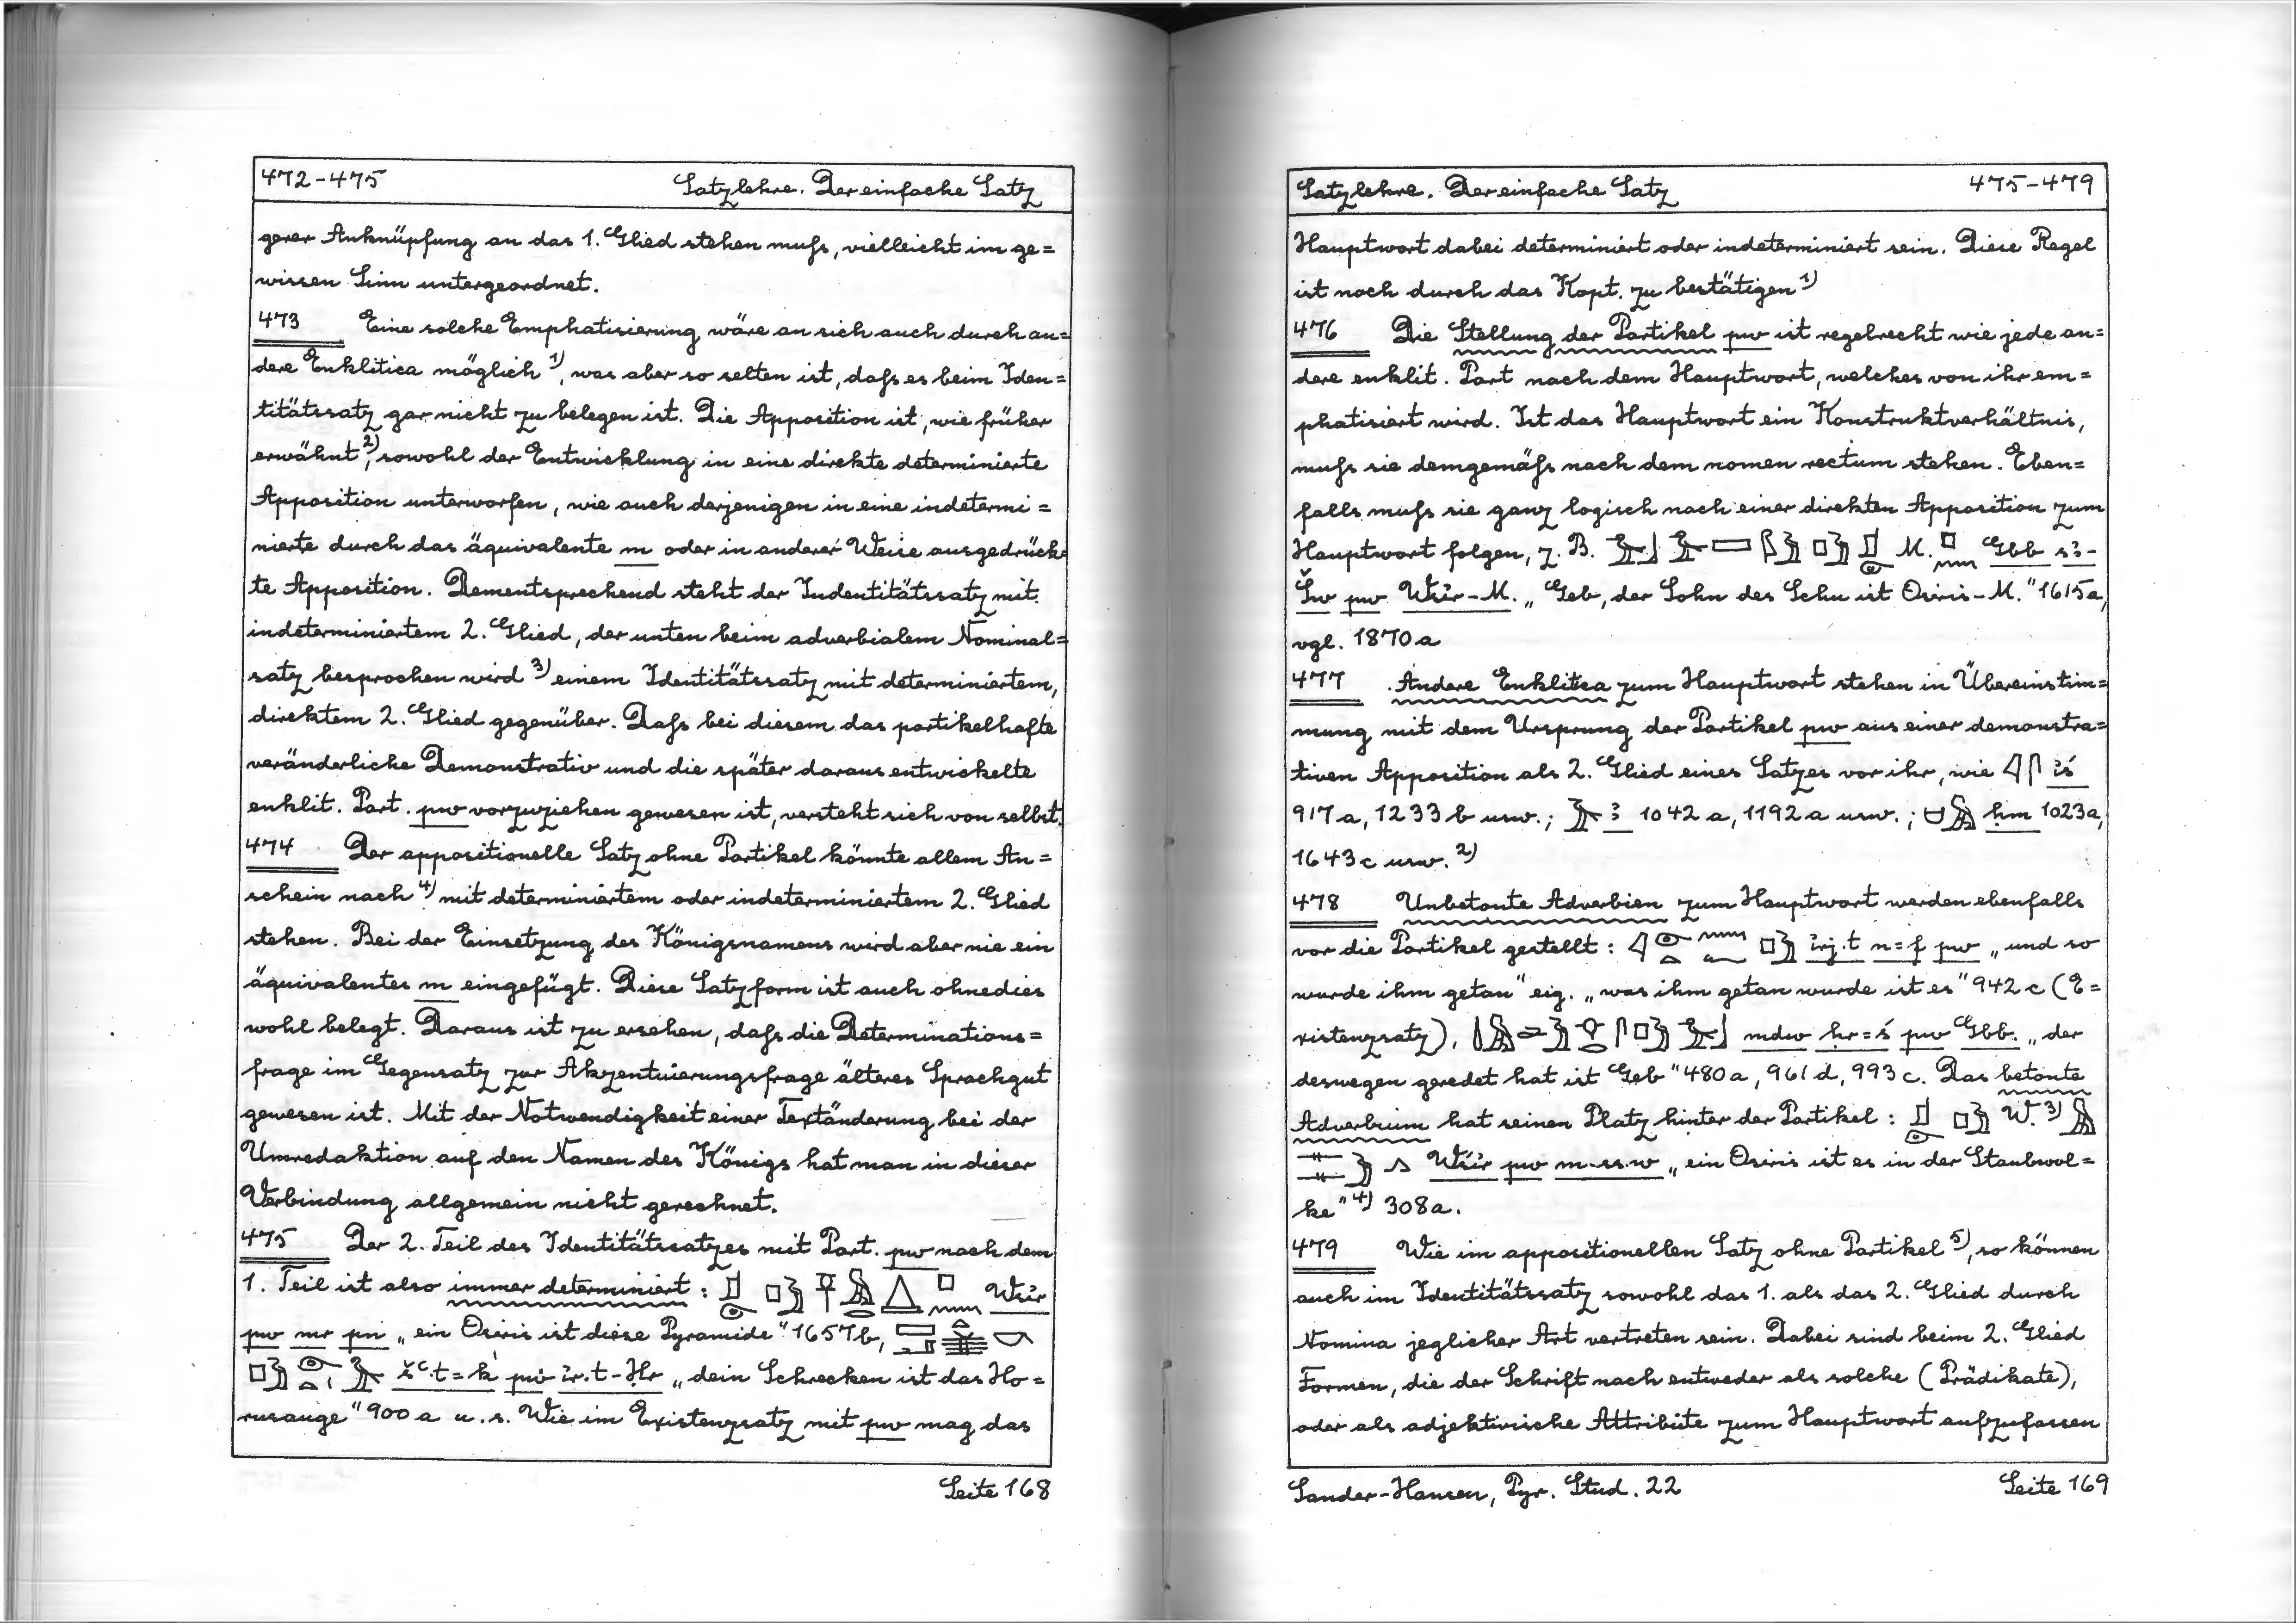 472-475 Satzlehre. Der einfache Satz
gerer Anknüpfung an das 1. Glied stehen muſs, vielleicht im ge=
wissen Sinn untergeordnet.
473 Eine solche Emphatisierung wäre an sich auch durch an=
dere Enklitica möglich 1), was aber so selten ist, daſs es beim Iden=
titätssatz gar nicht zu belegen ist. Die Apposition ist, wie früher
erwähnt 2), sowohl der Entwicklung in eine direkte determinierte
Apposition unterworfen, wie auch derjenigen in eine indetermi=
nierte durch das äquivalente m oder in anderer Weise ausgedrück=
te Apposition. Dementsprechend steht der Indentitätssatz mit
indeterminiertem 2. Glied, der unten beim adverbialem Nominal=
satz besprochen wird 3) einem Identitätssatz mit determiniertem,
direktem 2. Glied gegenüber. Daſs bei diesem das partikelhafte
veränderliche Demonstrativ und die später daraus entwickelte
enklit. Part. pw vorzuziehen gewesen ist, versteht sich von selbst.
474 Der appositionelle Satz ohne Partikel könnte allem An=
schein nach 4) mit determiniertem oder indeterminiertem 2. Glied
stehen. Bei der Einsetzung des Königsnamens wird aber nie ein
äquivalentes m eingefügt. Diese Satzform ist auch ohnedies
wohl belegt. Daraus ist zu ersehen, daſs die Determinations=
frage im Gegensatz zur Akzentuierungsfrage älteres Sprachgut
gewesen ist. Mit der Notwendigkeit einer Textänderung bei der
Umredaktion auf den Namen des Königs hat man in dieser
Verbindung allgemein nicht gerechnet.
475 Der 2. Teil des Identitätssatzes mit Part. pw nach dem
1. Teil ist also immer determiniert : Wśir
pw mr pn „ein Osiris ist diese Pyramide" 1657b,
šꜥ.t=k pw ir.t-Ḥr „dein Schrecken ist das Ho=
rusauge" 900 a u. s. Wie im Existenzsatz mit pw mag das
Seite 168
Satzlehre. Der einfache Satz 475-479
Hauptwort dabei determiniert oder indeterminiert sein. Diese Regel
ist noch durch das Kopt. zu bestätigen 1)
476 Die Stellung der Partikel pw ist regelrecht wie jede an=
dere enklit. Part nach dem Hauptwort, welches von ihr em=
phatisiert wird. Ist das Hauptwort ein Konstruktverhältnis,
muſs sie demgemäſs nach dem nomen rectum stehen. Eben=
falls muſs sie ganz logisch nach einer direkten Apposition zum
Hauptwort folgen, z. B. M. Gbb sꜣ-
Šw pw Wśir-M. „Geb, der Sohn des Schu ist Osiris-M." 1615a,
vgl. 1870 a
477 Andere Enklitica zum Hauptwort stehen in Übereinstim=
mung mit dem Ursprung der Partikel pw aus einer demonstra=
tiven Apposition als 2. Glied eines Satzes vor ihr, wie iś
917 a, 1233 b usw.; ꜣ 1042 a, 1192 a usw.; ḥm 1023a,
1643 c usw. 2)
478 Unbetonte Adverbien zum Hauptwort werden ebenfalls
vor die Partikel gestellt : irj.t n=f pw „und so
wurde ihm getan" eig. „was ihm getan wurde ist es" 942 c (E=
xistenzsatz), mdw ḥr=ś pw Gbb. „der
deswegen geredet hat ist Geb" 480 a, 961 d, 993 c. Das betonte
Adverbium hat seinen Platz hinter der Partikel : W. 3)
Wśir pw m-ss.w „ein Osiris ist es in der Staubwol=
ke" 4) 308a.
479 Wie im appositionellen Satz ohne Partikel 5), so können
auch im Identitätssatz sowohl das 1. als das 2. Glied durch
Nomina jeglicher Art vertreten sein. Dabei sind beim 2. Glied
Formen, die der Schrift nach entweder als solche (Prädikate),
oder als adjektivische Attribute zum Hauptwort aufzufassen
Sander-Hansen, Pyr. Stud. 22 Seite 169